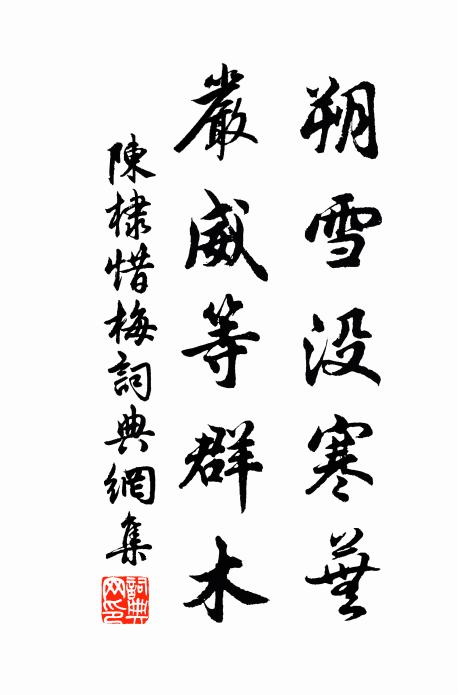 朔雪没寒蕪
嚴威等群木
陳棣惜梅詞典網集
詞典網印